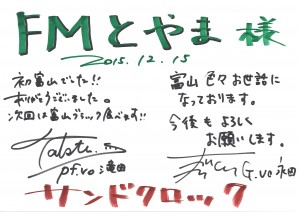 FMとやま 様
2015.12.15
初富山でした!!
ありがとうございました。
次回は富山ブラック食べます!!
pf.vo 滝田
富山色々お世話に
なっております。
今後もよろしく
お願いします。
G.vo 永田
サンドクロック